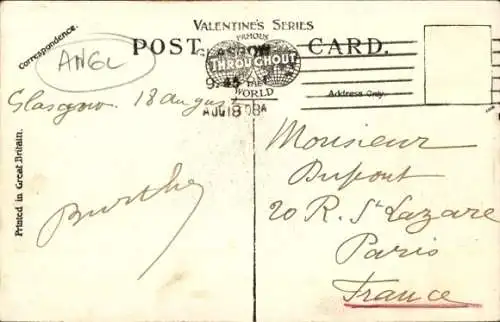 VALENTINE'S SERIES
FAMOUS
POST CARD.
GLASGOW
THROUGHOUT
9.45
THE
WORLD
AUG 18 08
Correspondence.
ANGL
Address Only.
Printed in Great Britain.
Glasgow 18 August
Burthe
Monsieur
Dupont
20 R. St Lazare
Paris
France